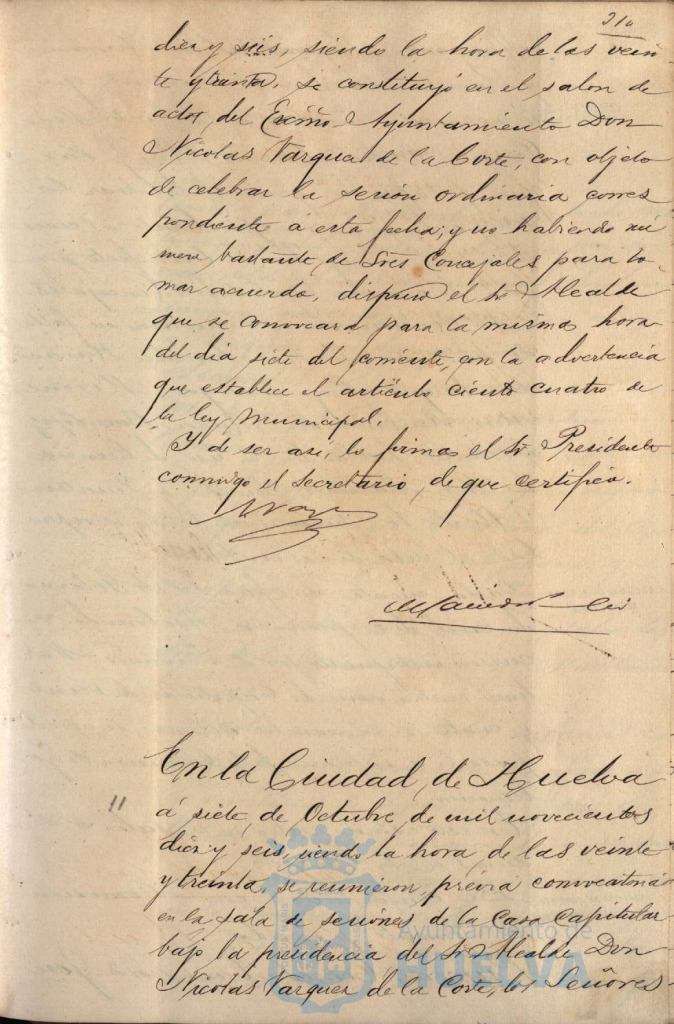 210
diez y seis, siendo la hora de las vein
te y treinta, se constituyó en el salon de
actos del Excmo Ayuntamiento Don
Nicolas Vazquez de la Corte, con objeto
de celebrar la sesion ordinaria corres
pondiente á esta fecha; y no habiendo nú
mero bastante de Sres Concejales para to
mar acuerdo, dispuso el Sr. Alcalde
que se convocara para la misma hora
del dia siete del corriente, con la advertencia
que establece el artículo ciento cuatro de
la ley Municipal.
Y de ser asi, lo firma el Sr. Presidente
conmigo el Secretario, de que certifico.
En la Ciudad de Huelva
11
á siete de Octubre de mil novecientos
diez y seis, siendo la hora de las veinte
y treinta, se reunieron, prévia convocatoria
en la sala de sesiones de la Casa Capitular
bajo la presidencia del Sr. Alcalde Don
Nicolas Vazquez de la Corte, los Señores
Ayuntamiento de
HUELVA